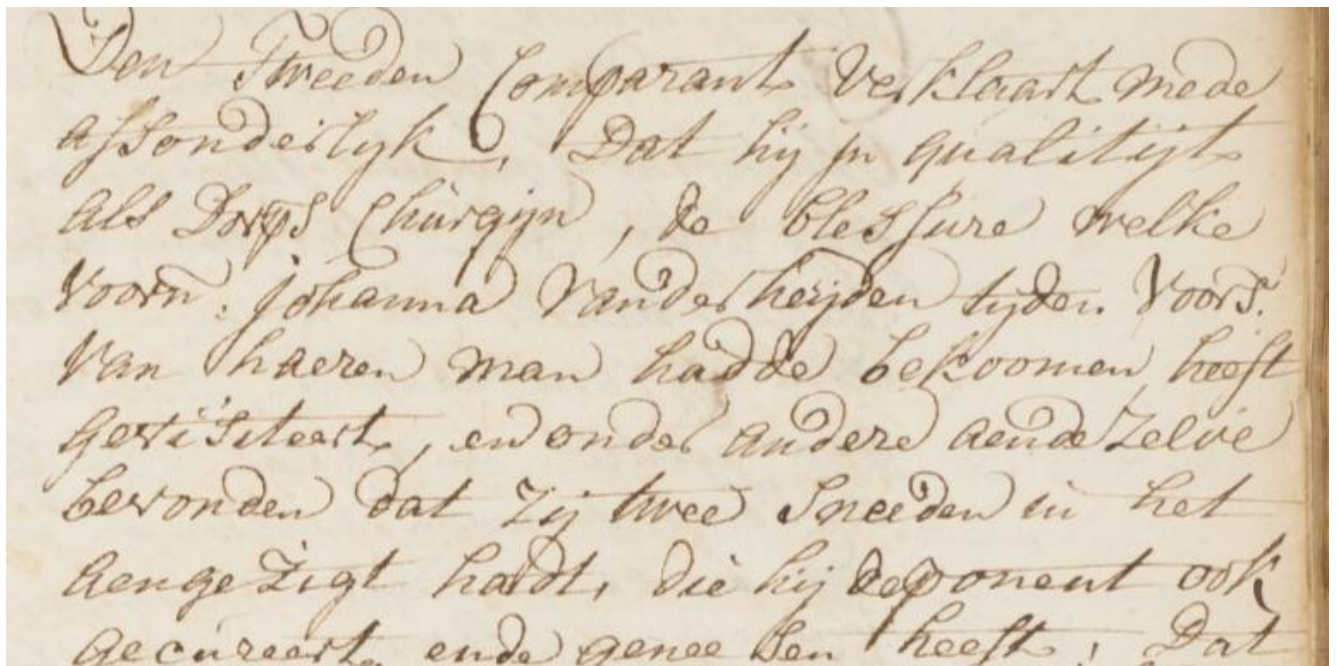 Den Tweeden Comparant Verklaart mede
afsonderlyk, Dat hij in qualitijt
als Dorps Chirurgijn, de blessure welke
Voorn. Johanna Vander heijden tyden Voors.
Van haeren man hadde bekoomen heeft
gevisiteert, en onder andere aende Zelve
bevonden dat Zij twee Sneeden in het
aengeZigt hadt, die hij deponent ook
gecureert ende geneesen heeft, Dat